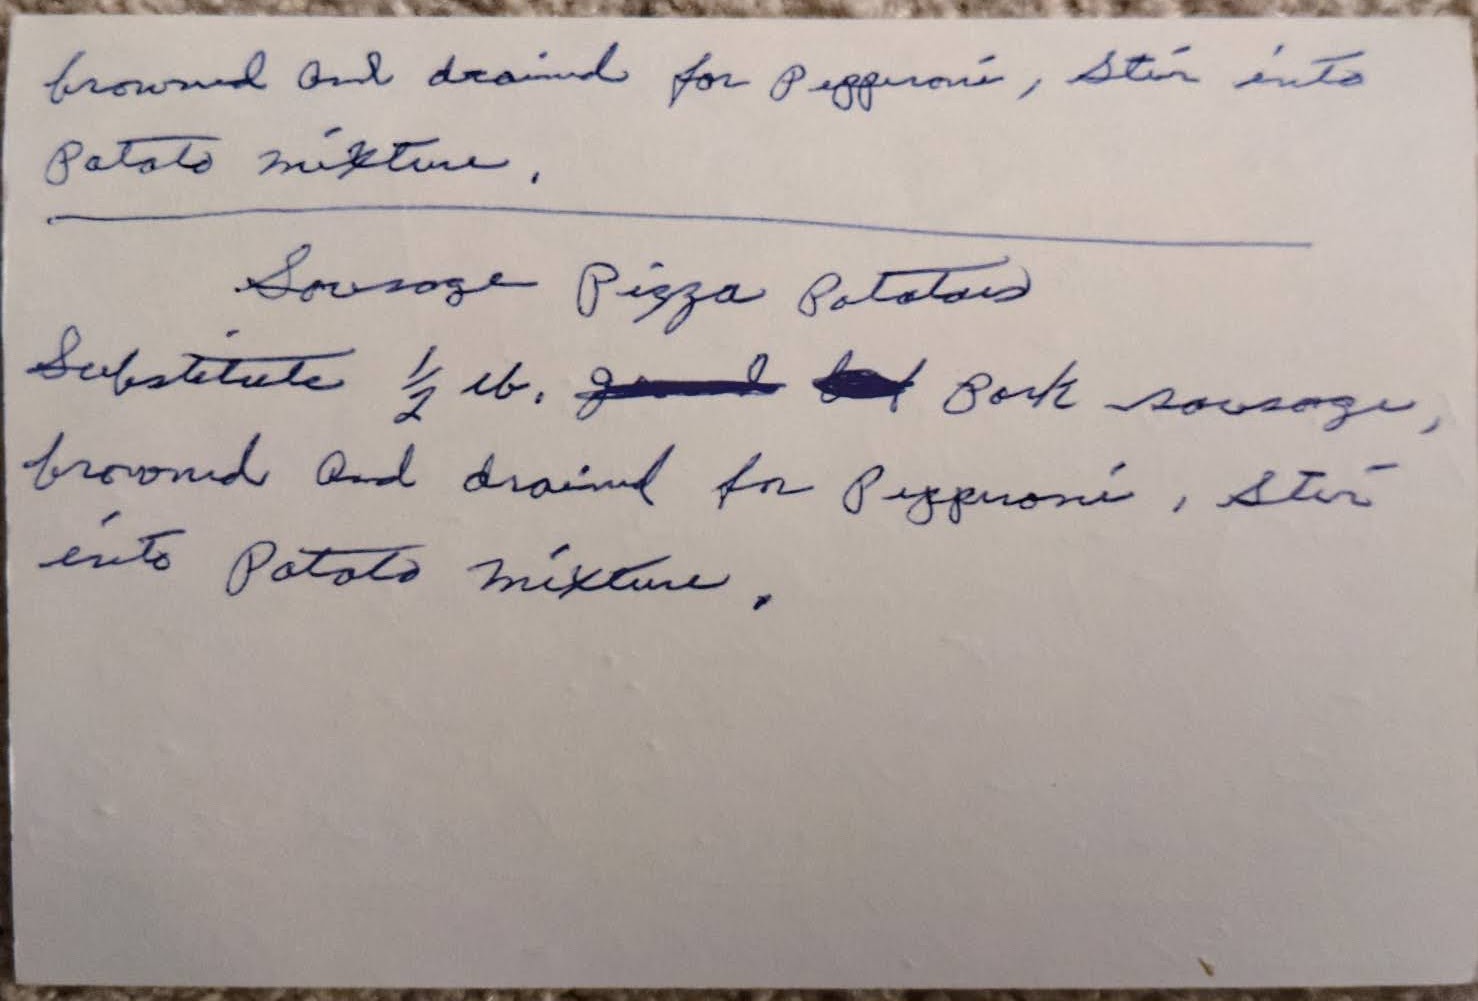 browned and drained for Pepperoni, Stir into
Potato mixture.
Sausage Pizza Potatoes
Substitute 1/2 lb. Pork sausage,
browned and drained for Pepperoni, Stir
into Potato mixture.